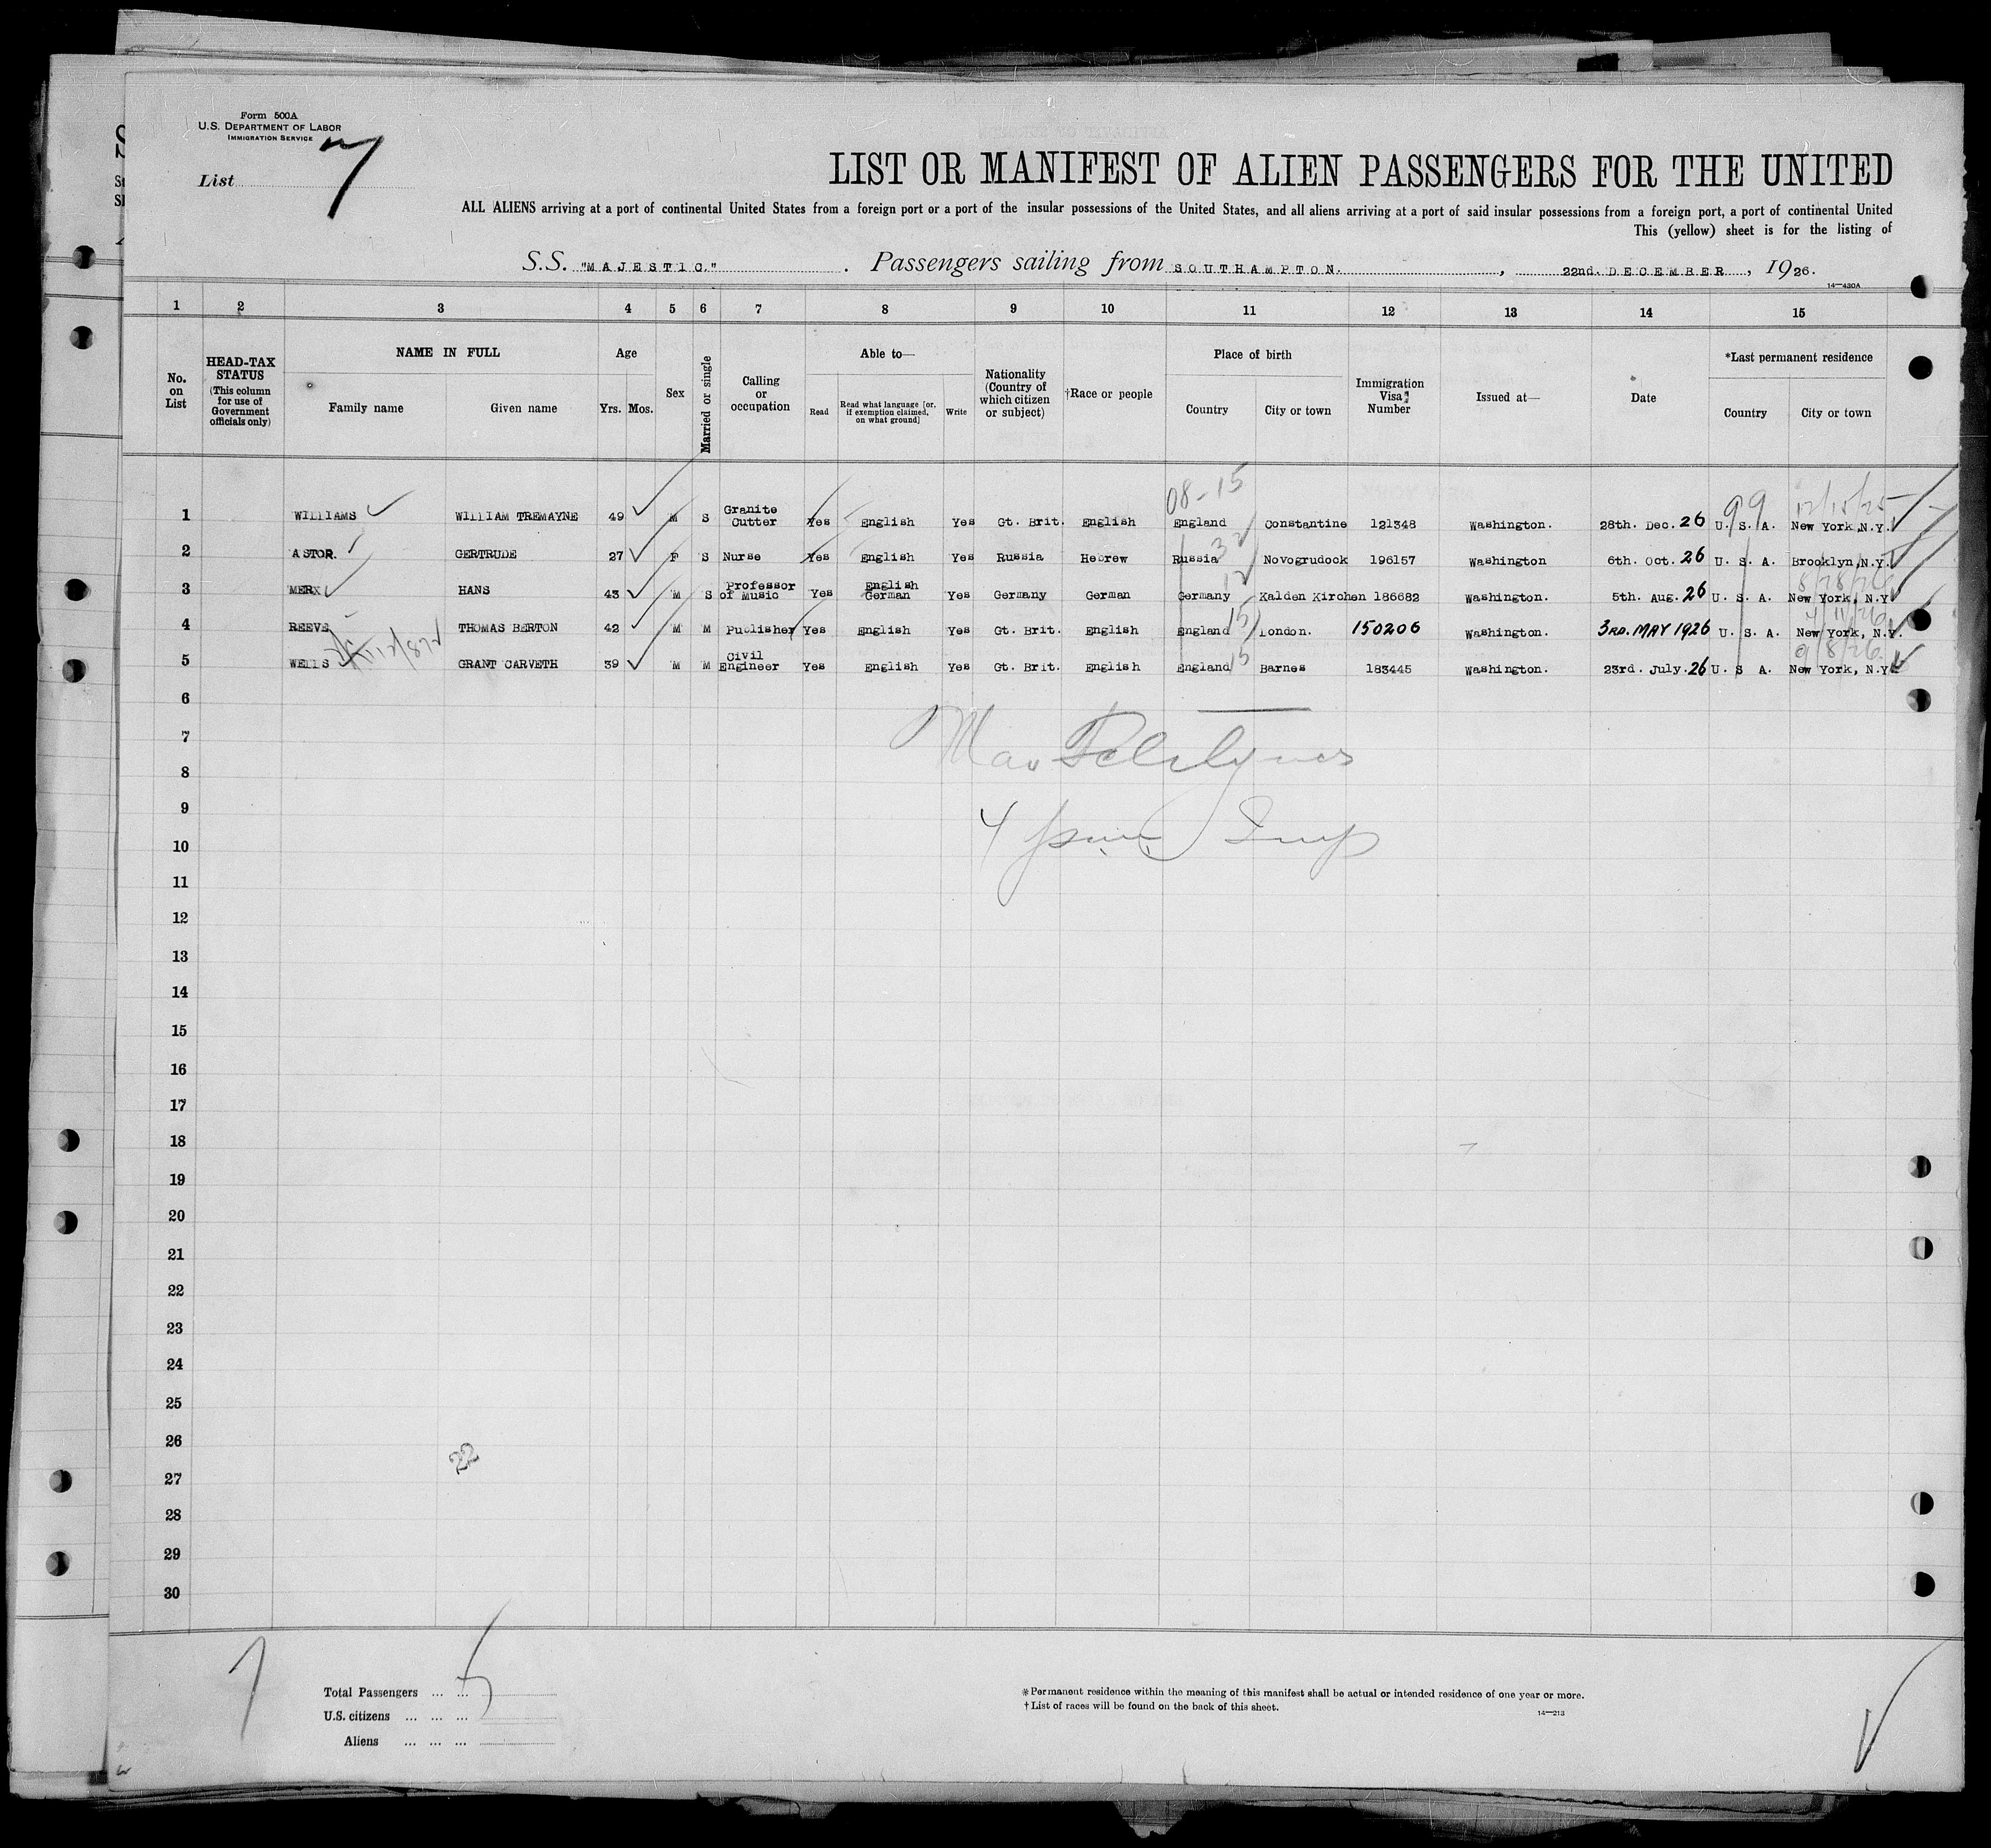 Form 500A
U.S. DEPARTMENT OF LABOR
IMMIGRATION SERVICE
List 7
LIST OR MANIFEST OF ALIEN PASSENGERS FOR THE UNITED
ALL ALIENS arriving at a port of continental United States from a foreign port or a port of the insular possessions of the United States, and all aliens arriving at a port of said insular possessions from a foreign port, a port of continental United
This (yellow) sheet is for the listing of
S.S. "MAJESTIC." Passengers sailing from SOUTHAMPTON. , 22nd. DECEMBER , 1926.
14—430A
1 2 3 4 5 6 7 8 9 10 11 12 13 14 15
No. on List
HEAD-TAX STATUS (This column for use of Government officials only)
NAME IN FULL
Family name Given name
Age
Yrs. Mos.
Sex
Married or single
Calling or occupation
Able to—
Read
Read what language [or, if exemption claimed, on what ground]
Write
Nationality (Country of which citizen or subject)
†Race or people
Place of birth
Country City or town
Immigration Visa Number
Issued at—
Date
*Last permanent residence
Country City or town
08-15 99 12/15/25
1 WILLIAMS WILLIAM TREMAYNE 49 M S Granite Cutter Yes English Yes Gt. Brit. English England Constantine 121348 Washington. 28th. Dec. 26 U. S. A. New York, N.Y.
2 ASTOR. GERTRUDE 27 F S Nurse Yes English Yes Russia Hebrew Russia 32 Novogrudock 196157 Washington 6th. Oct. 26 U. S. A. Brooklyn, N.Y.
12 8/28/26
3 MERX HANS 43 M S Professor of Music Yes English German Yes Germany German Germany Kalden Kirchen 186682 Washington. 5th. Aug. 26 U. S. A. New York, N.Y.
4/11/26
4 REEVE THOMAS BERTON 42 M M Publisher Yes English Yes Gt. Brit. English England 15 London. 150206 Washington. 3RD. MAY 1926 U. S. A. New York, N.Y.
9/8/26
5 WELLS GRANT CARVETH 39 M M Civil Engineer Yes English Yes Gt. Brit. English England 15 Barnes 183445 Washington. 23rd. July. 26 U. S A. New York, N.Y.
6
7
8
9
10
11
12
13
14
15
16
17
18
19
20
21
22
23
24
25
26
27
28
29
30
22
7
Total Passengers ... ... 5
U.S. citizens ... ... ...
Aliens ... ... ...
*Permanent residence within the meaning of this manifest shall be actual or intended residence of one year or more.
†List of races will be found on the back of this sheet.
14—213